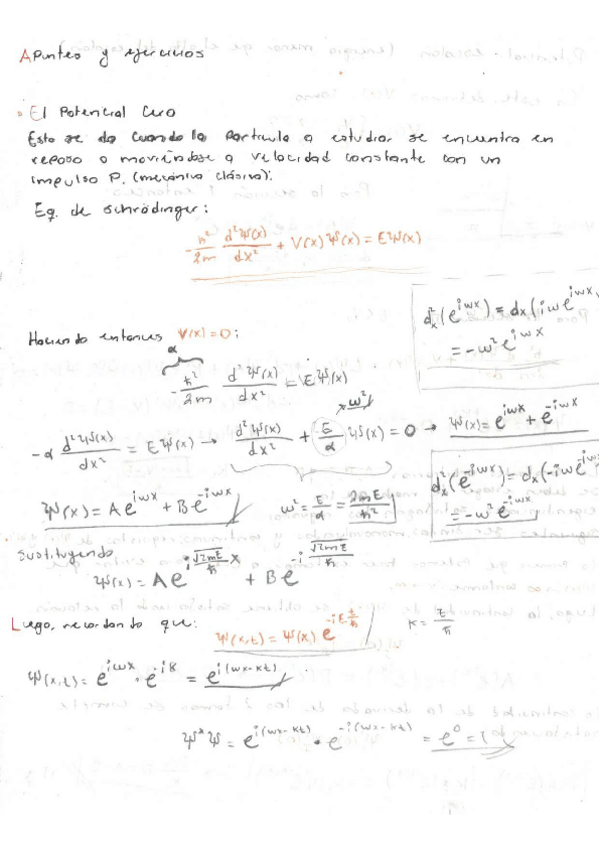 Apuntes y ejercicios
• El Potencial Cero
Esto se da cuando la particula a estudiar se encuentra en
reposo o moviéndose a velocidad constante con un
impulso P. (mecánica clásica).
Eq. de Schrödinger:
-ħ²/2m d²Ψ(x)/dx² + V(x)Ψ(x) = EΨ(x)
d²ₓ(e^{iwx}) = dx(iwe^{iwx})
= -w²e^{iwx}
Haciendo entonces V(x)=0:
α
-ħ²/2m d²Ψ(x)/dx² = EΨ(x)
w²
-α d²Ψ(x)/dx² = EΨ(x) → d²Ψ(x)/dx² + E/α Ψ(x) = 0 → Ψ(x) = e^{iwx} + e^{-iwx}
d²ₓ(e^{-iwx}) = dx(-iwe^{-iwx})
= -w²e^{-iwx}
Ψ(x) = Ae^{iwx} + Be^{-iwx}
w² = E/α = 2mE/ħ²
Sustituyendo
Ψ(x) = Ae^{i√2mE/ħ x} + Be^{-i√2mE/ħ}
Luego, recordando que: Ψ(x,t) = Ψ(x) e^{-iEt/ħ}
K = E/ħ
Ψ(x,t) = e^{iwx} · e^{-iK} = e^{i(wx-kt)}
Ψ*Ψ = e^{i(wx-kt)} · e^{-i(wx-kt)} = e⁰ = 1